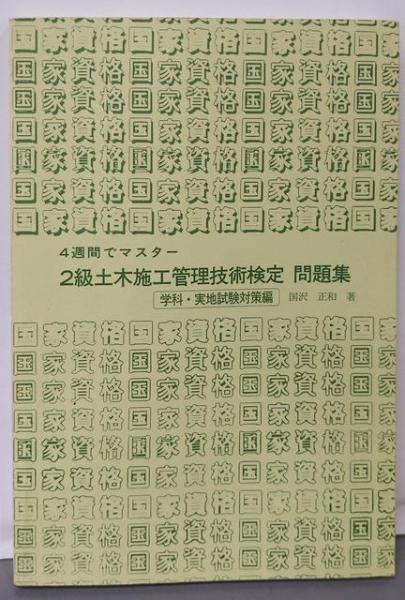 国家資格国家資格国家資格
国家資格国家資格国家資格
国家資格国家資格国家資格
国家資格国家資格国家資格
国家資格国家資格国家資格
国家資格国家資格国家資格
国家資格国家資格国家資格
4週間でマスター
2級土木施工管理技術検定 問題集
学科・実地試験対策編 国沢 正和 著
国家資格国家資格国家資格
国家資格国家資格国家資格
国家資格国家資格国家資格
国家資格国家資格国家資格
国家資格国家資格国家資格
国家資格国家資格国家資格
国家資格国家資格国家資格
国家資格国家資格国家資格
国家資格国家資格国家資格